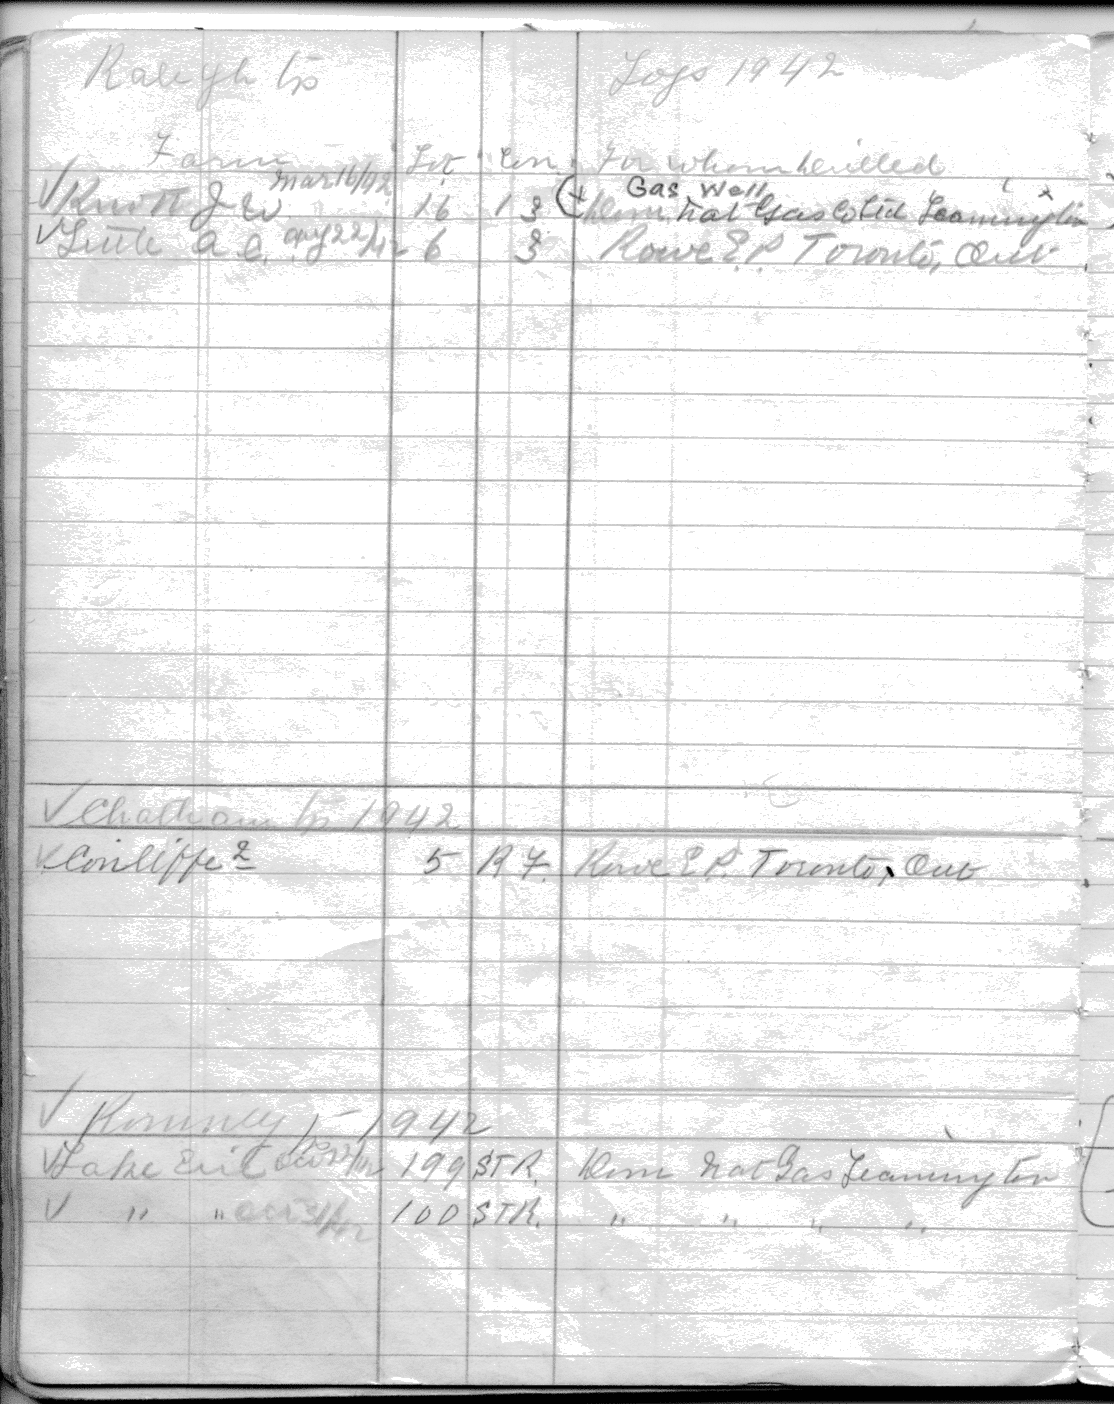 Raleigh tp Logs 1942
Farm Lot Con. For whom drilled
Mar 16/42 Gas Well
✓ Knott J W 16 13 Dom. Nat Gas Co Ltd Leamington
✓ Little A. C. Aug 22/42 6 3 Rowe E.P. Toronto, Ont
✓ Chatham tp 1942
✓ Cunliffe 2 5 R F. Rowe E P. Toronto, Ont
✓ Romney tp 1942
✓ Lake Erie 199 STR. Dom Nat Gas Leamington
✓ " " Oct 31/42 100 STR. " " " "